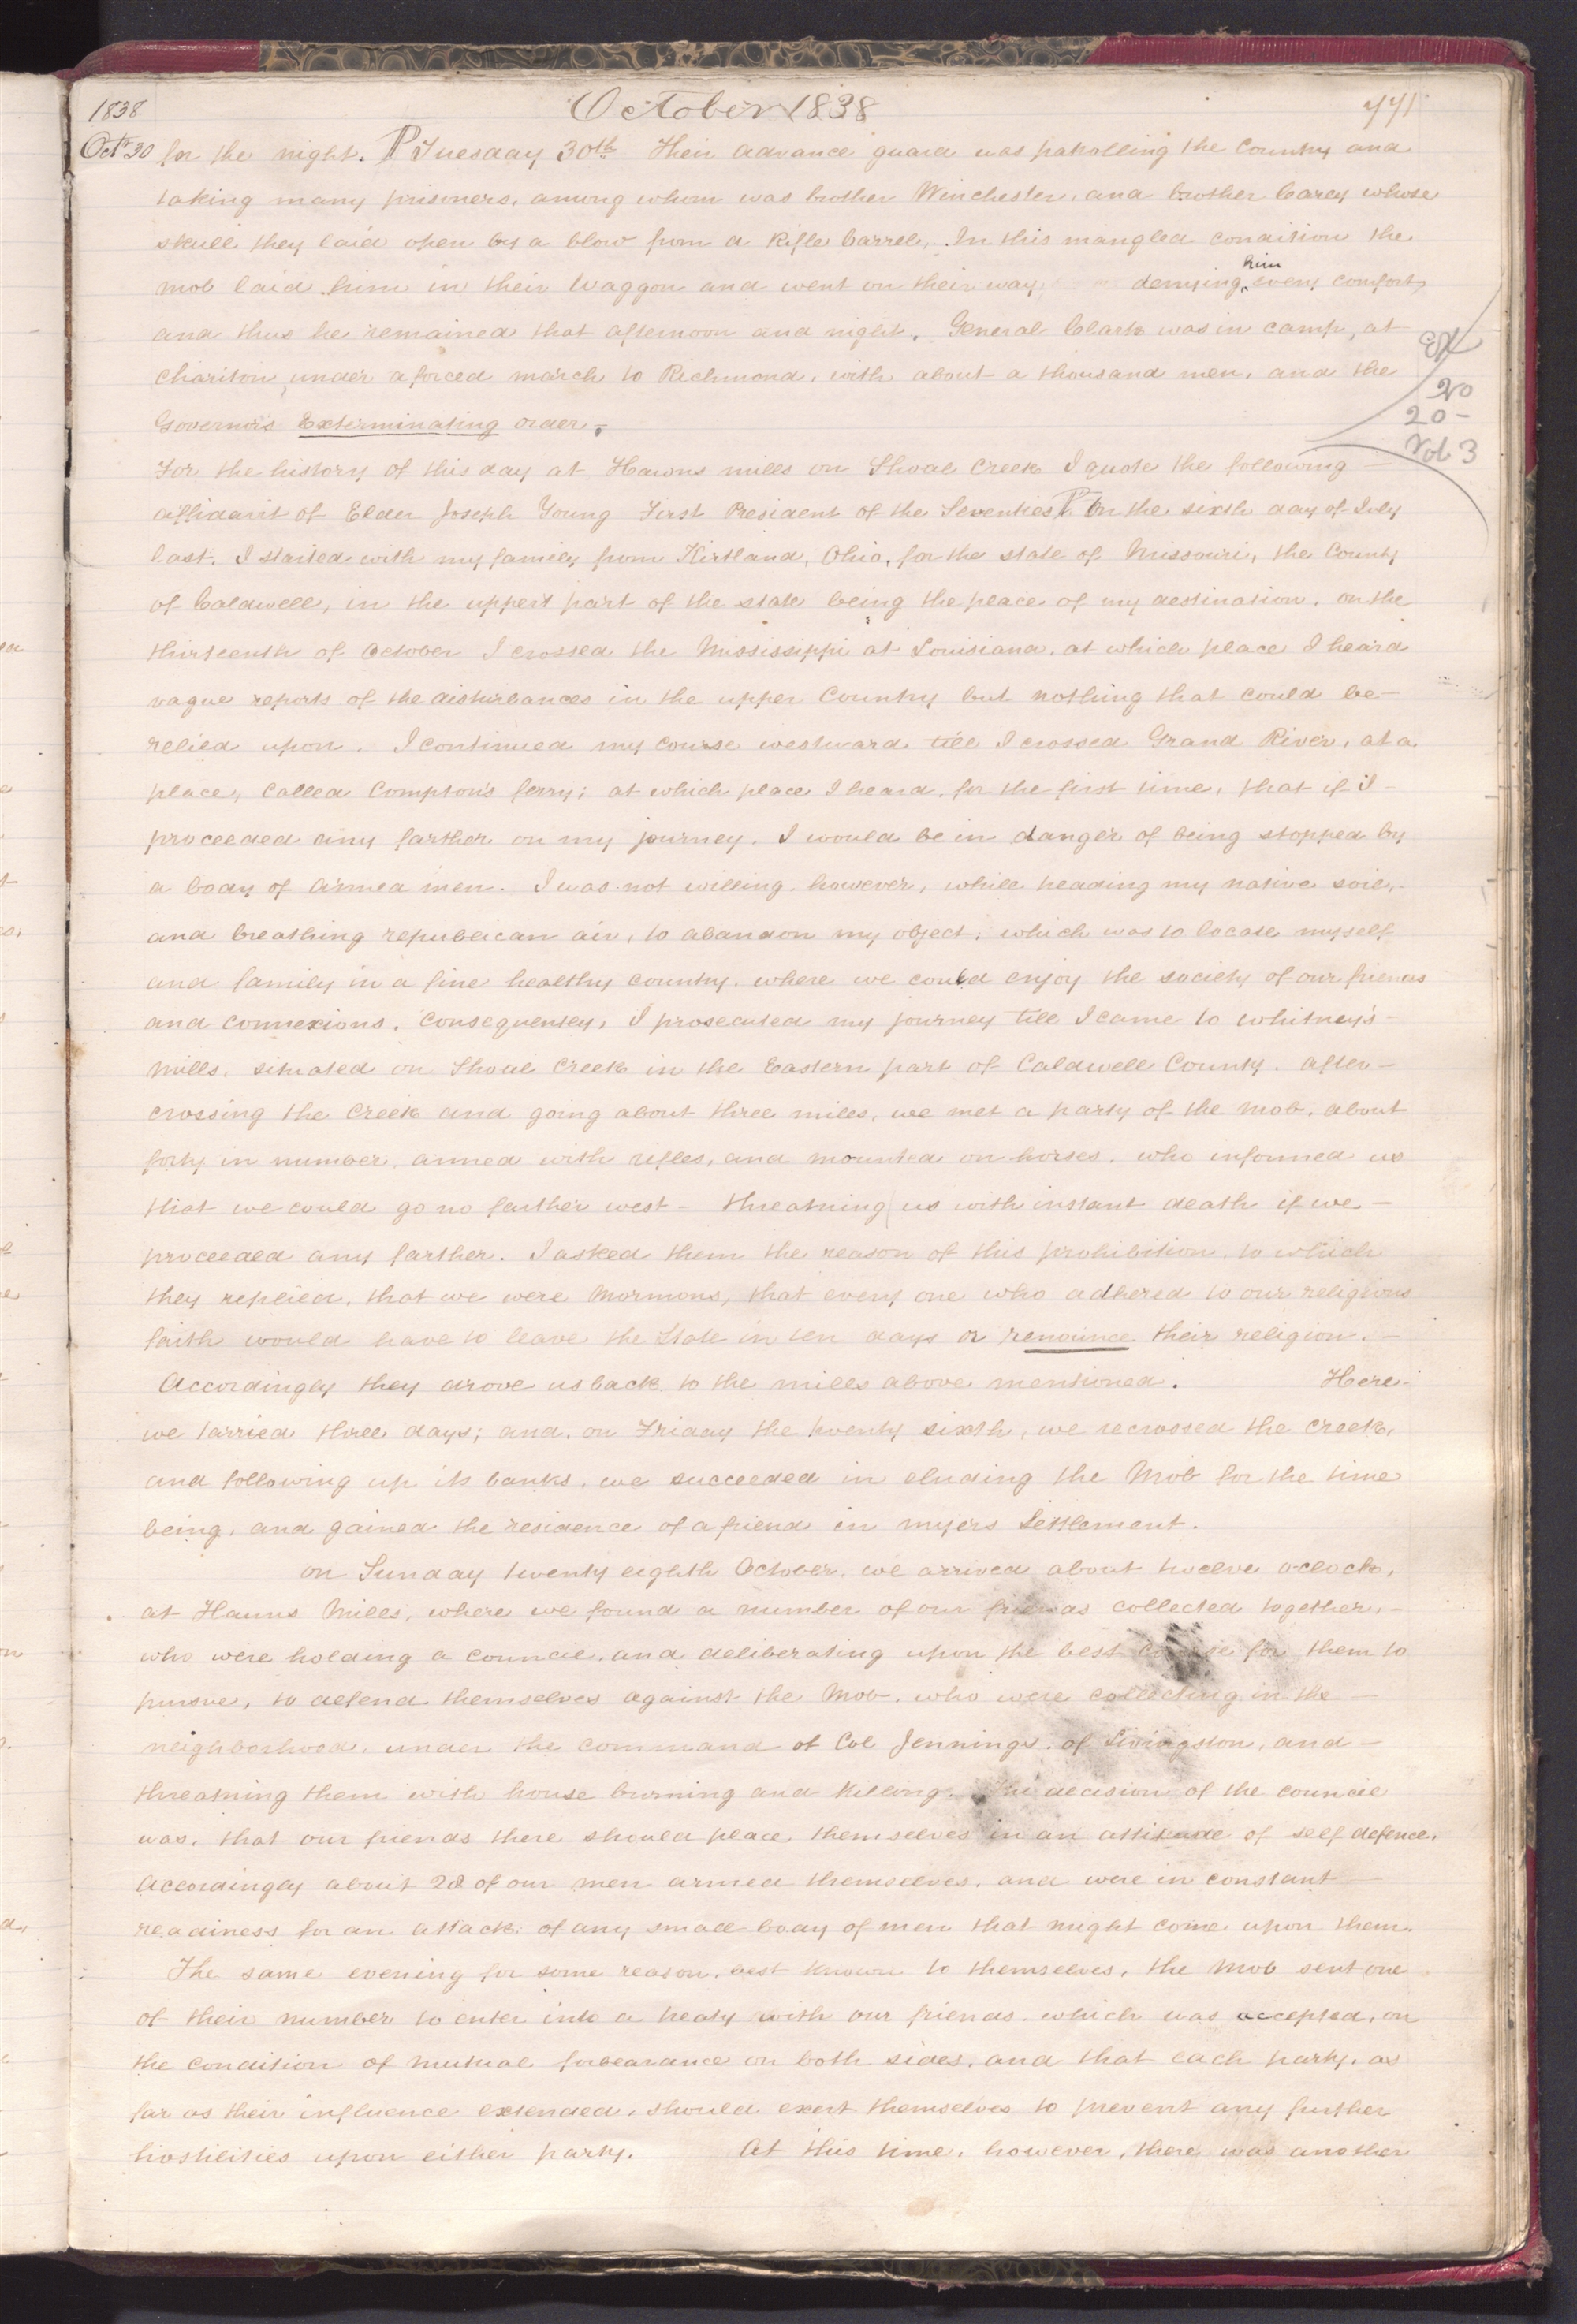 1838 October 1838 771
Octr 30 for the night. P Tuesday 30th Their advance guard was patrolling the Country and
taking many prisoners, among whom was brother Winchester, and brother Carey whose
skull they laid open by a blow from a Rifle barrel, In this mangled condition the
him
mob laid him in their Waggon and went on their way denying ^ every comfort,
and thus he remained that afternoon and night. General Clark was in camp, at
Ex
Chariton under a forced march to Richmond, with about a thousand men, and the
No
20-
Governor's Exterminating order,
Vol 3
For the history of this day at Hawns mills on Shoal Creek I quote the following —
affidavit of Elder Joseph Young First President of the Seventies P On the sixth day of July
last. I started with my family from Kirtland, Ohio, for the state of Missouri, the County
of Caldwell, in the upper part of the state being the place of my destination. on the
thirteenth of October I crossed the Mississippi at Louisiana. at which place I heard
vague reports of the disturbances in the upper Country but nothing that could be—
relied upon. I continued my course westward till I crossed Grand River, at a
place, called Compton's ferry; at which place I heard, for the first time, that if I—
proceeded any farther on my journey, I would be in danger of being stopped by
a body of armed men. I was not willing however, while treading my native soil,
and breathing republican air, to abandon my object; which was to locate myself
and family in a fine healthy country, where we could enjoy the society of our friends
and connexions. Consequently, I prosecuted my journey till I came to Whitney's—
mills, situated on Shoal Creek in the Eastern part of Caldwell County. after—
crossing the Creek and going about three miles, we met a party of the mob, about
forty in number, armed with rifles, and mounted on horses, who informed us
that we could go no farther west— threatning us with instant death if we—
proceeded any farther. I asked them the reason of this prohibition, to which
they replied, that we were Mormons, that every one who adhered to our religious
faith would have to leave the State in ten days or renounce their religion.—
Accordingly they drove us back to the mills above mentioned. Here—
we tarried three days; and, on Friday the twenty sixth, we recrossed the creek,
and following up its banks, we succeeded in eluding the Mob for the time
being, and gained the residence of a friend in myers Settlement.
on Sunday twenty eighth October, we arrived about twelve o'clock,
at Hauns Mills, where we found a number of our friends collected together,—
who were holding a council, and deliberating upon the best course for them to
pursue, to defend themselves against the Mob, who were collecting in the—
neighborhood, under the command of Col Jennings, of Livingston, and—
threatning them with house burning and killing. The decision of the council
was, that our friends there should place themselves in an attitude of self defence.
Accordingly about 28 of our men armed themselves, and were in constant—
readiness for an attack of any small body of men that might come upon them.
The same evening for some reason, best known to themselves, the Mob sent one
of their number to enter into a treaty with our friends, which was accepted, on
the condition of mutual forbearance on both sides, and that each party, as
far as their influence extended, should exert themselves to prevent any further
hostilities upon either party. At this time, however, there was another